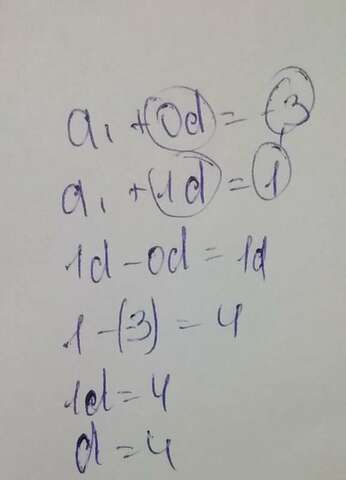 a₁ + 0d = -3
a₁ + 1d = 1
1d - 0d = 1d
1 - (-3) = 4
1d = 4
d = 4